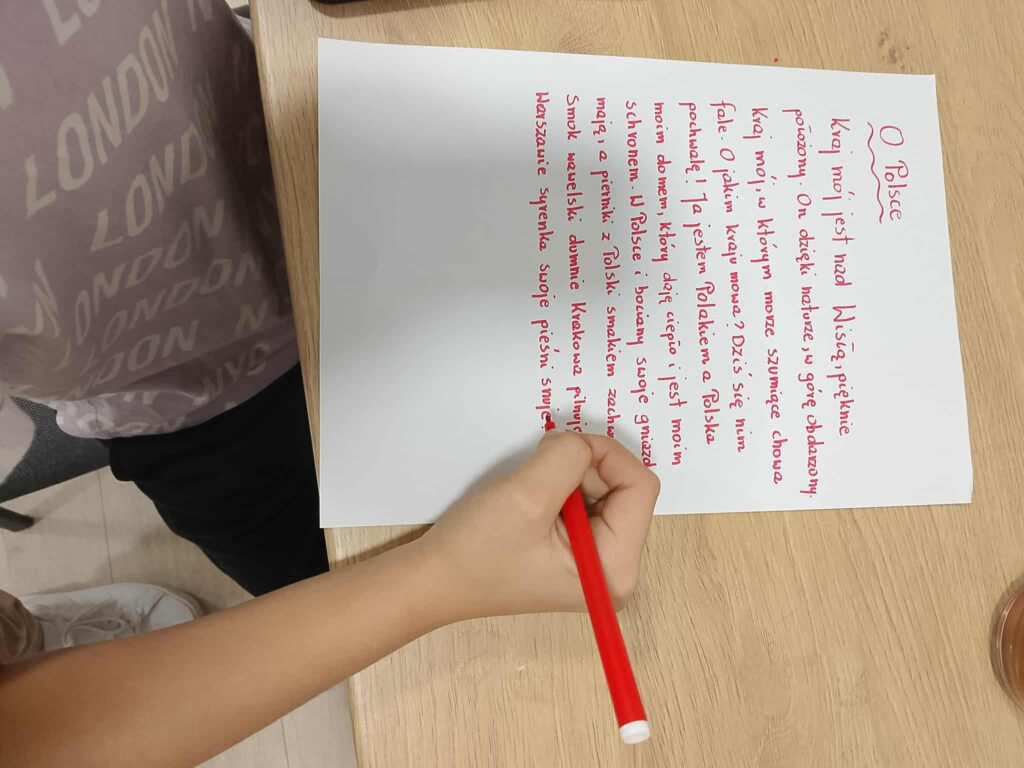 O Polsce
Kraj mój jest nad Wisłą, pięknie
położony. On dzięki naturze, w górę obdarzony.
Kraj mój, w którym morze szumiące chowa
fale. O jakim kraju mowa? Dziś się nim
pochwalę! Ja jestem Polakiem a Polska
moim domem, który daję ciepło i jest moim
schronem. W Polsce i bociany swoje gniazd
mają, a pierniki z Polski smakiem
Smok wawelski dumnie Krakowa
Warszawie syrenka swoje pieśni snuje.
LONDON
LONDON
LONDON
LONDON
LONDON
NYC